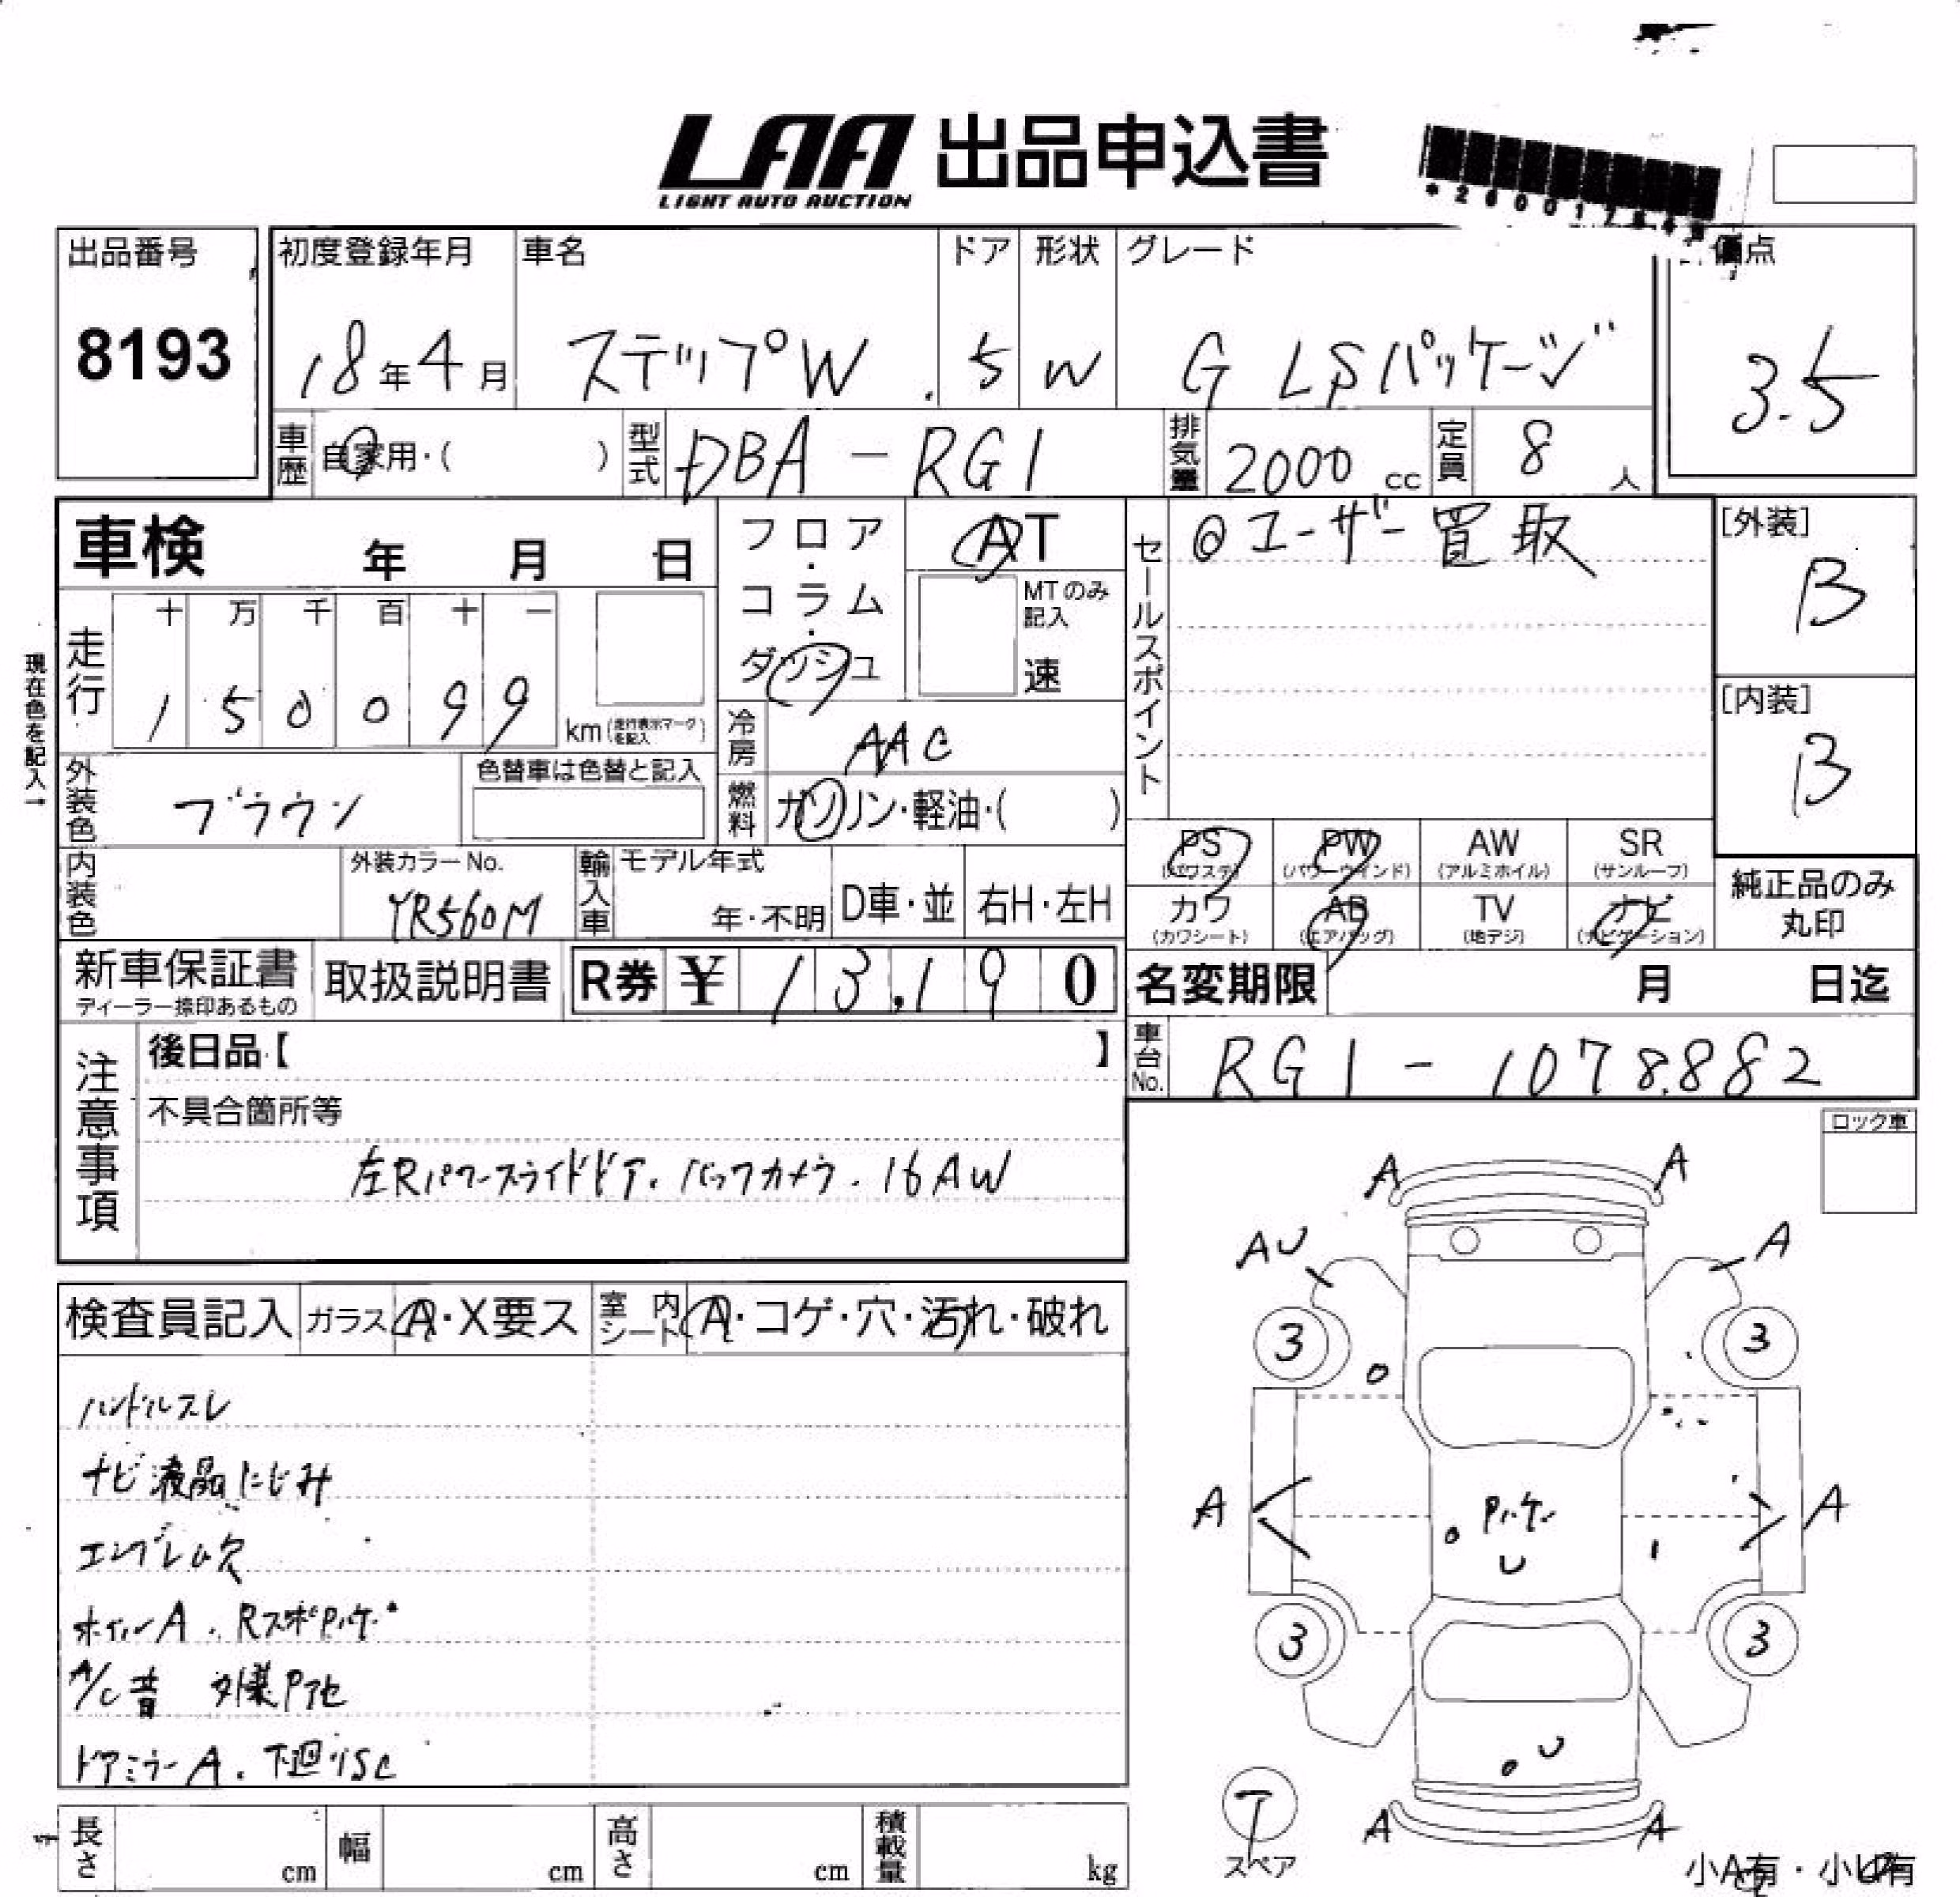 LAA 出品申込書
LIGHT AUTO AUCTION
出品番号
8193
初度登録年月
18年4月
車名
ステップW
ドア
5
形状
W
グレード
G LSパッケージ
点
3.5
車歴
自家用・( )
型式
DBA-RG1
排気量
2000cc
定員
8人
車検 年 月 日
走行
十 万 千 百 十 一
1 5 0 0 9 9
km(走行表示マークを記入)
現在色を記入→
外装色
ブラウン
色替車は色替と記入
内装色
外装カラーNo.
YR560M
フロア・コラム・ダッシュ
AT
MTのみ記入
速
冷房
AAC
燃料
ガソリン・軽油・( )
輸入車
モデル年式
年・不明
D車・並
右H・左H
セールスポイント
◎ユーザー買取
[外装]
B
[内装]
B
PS (パワステ)
PW (パワーウインド)
AW (アルミホイル)
SR (サンルーフ)
カワ (カワシート)
AB (エアバッグ)
TV (地デジ)
ナビ (ナビゲーション)
純正品のみ丸印
新車保証書
ディーラー捺印あるもの
取扱説明書
R券 ¥ 13,190
名変期限 月 日迄
車台No.
RG1-1078882
注意事項
後日品【 】
不具合箇所等
左Rパワースライドドア. バックカメラ. 16AW
ロック車
検査員記入
ガラス
A・X要ス
室内シート
A・コゲ・穴・汚れ・破れ
ハンドルスレ
ナビ液晶にじみ
エンブレム欠
ホイルA.
A/C昔
ドアミラーA. 下廻りSC
A A
AU A
3 3
A A
U
3 3
U
T
スペア
A A
小A有・小U有
長さ cm
幅 cm
高さ cm
積載量 kg